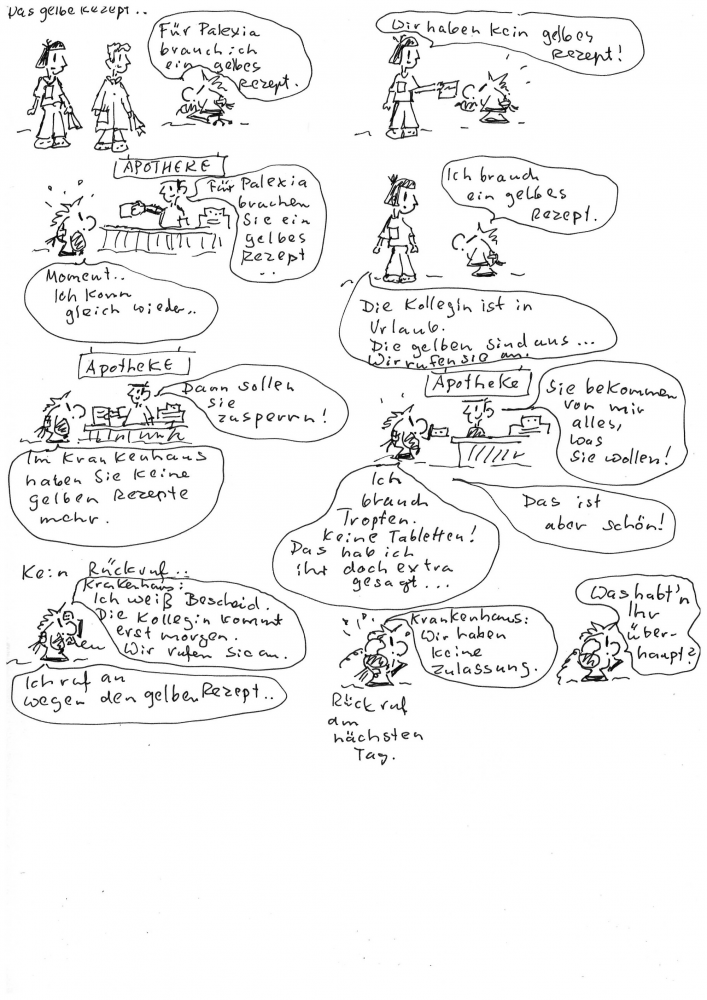 Das gelbe Rezept..
Für Palexia
brauch ich
ein gelbes
Rezept.
Wir haben kein gelbes
Rezept!
APOTHEKE
Für Palexia
brachen
Sie ein
gelbes
Rezept
..
Moment..
Ich komm
gleich wieder..
Ich brauch
ein gelbes
Rezept.
Die Kollegin ist in
Urlaub.
Die gelben sind aus...
Wir rufen sie an.
Apotheke
Dann sollen
sie
zusperrn!
Im Krankenhaus
haben Sie keine
gelben Rezepte
mehr.
Apotheke
Sie bekommen
von mir
alles,
was
Sie wollen!
Ich
brauch
Tropfen.
Keine Tabletten!
Das hab ich
ihr doch extra
gesagt...
Das ist
aber schön!
Kein Rückruf..
Krankenhaus:
Ich weiß Bescheid.
Die Kollegin kommt
erst morgen.
Wir rufen Sie an.
Ich ruf an
wegen den gelben Rezept..
Krankenhaus:
Wir haben
keine
Zulassung.
Rückruf
am
nächsten
Tag.
Was habt'n
Ihr
über-
haupt?